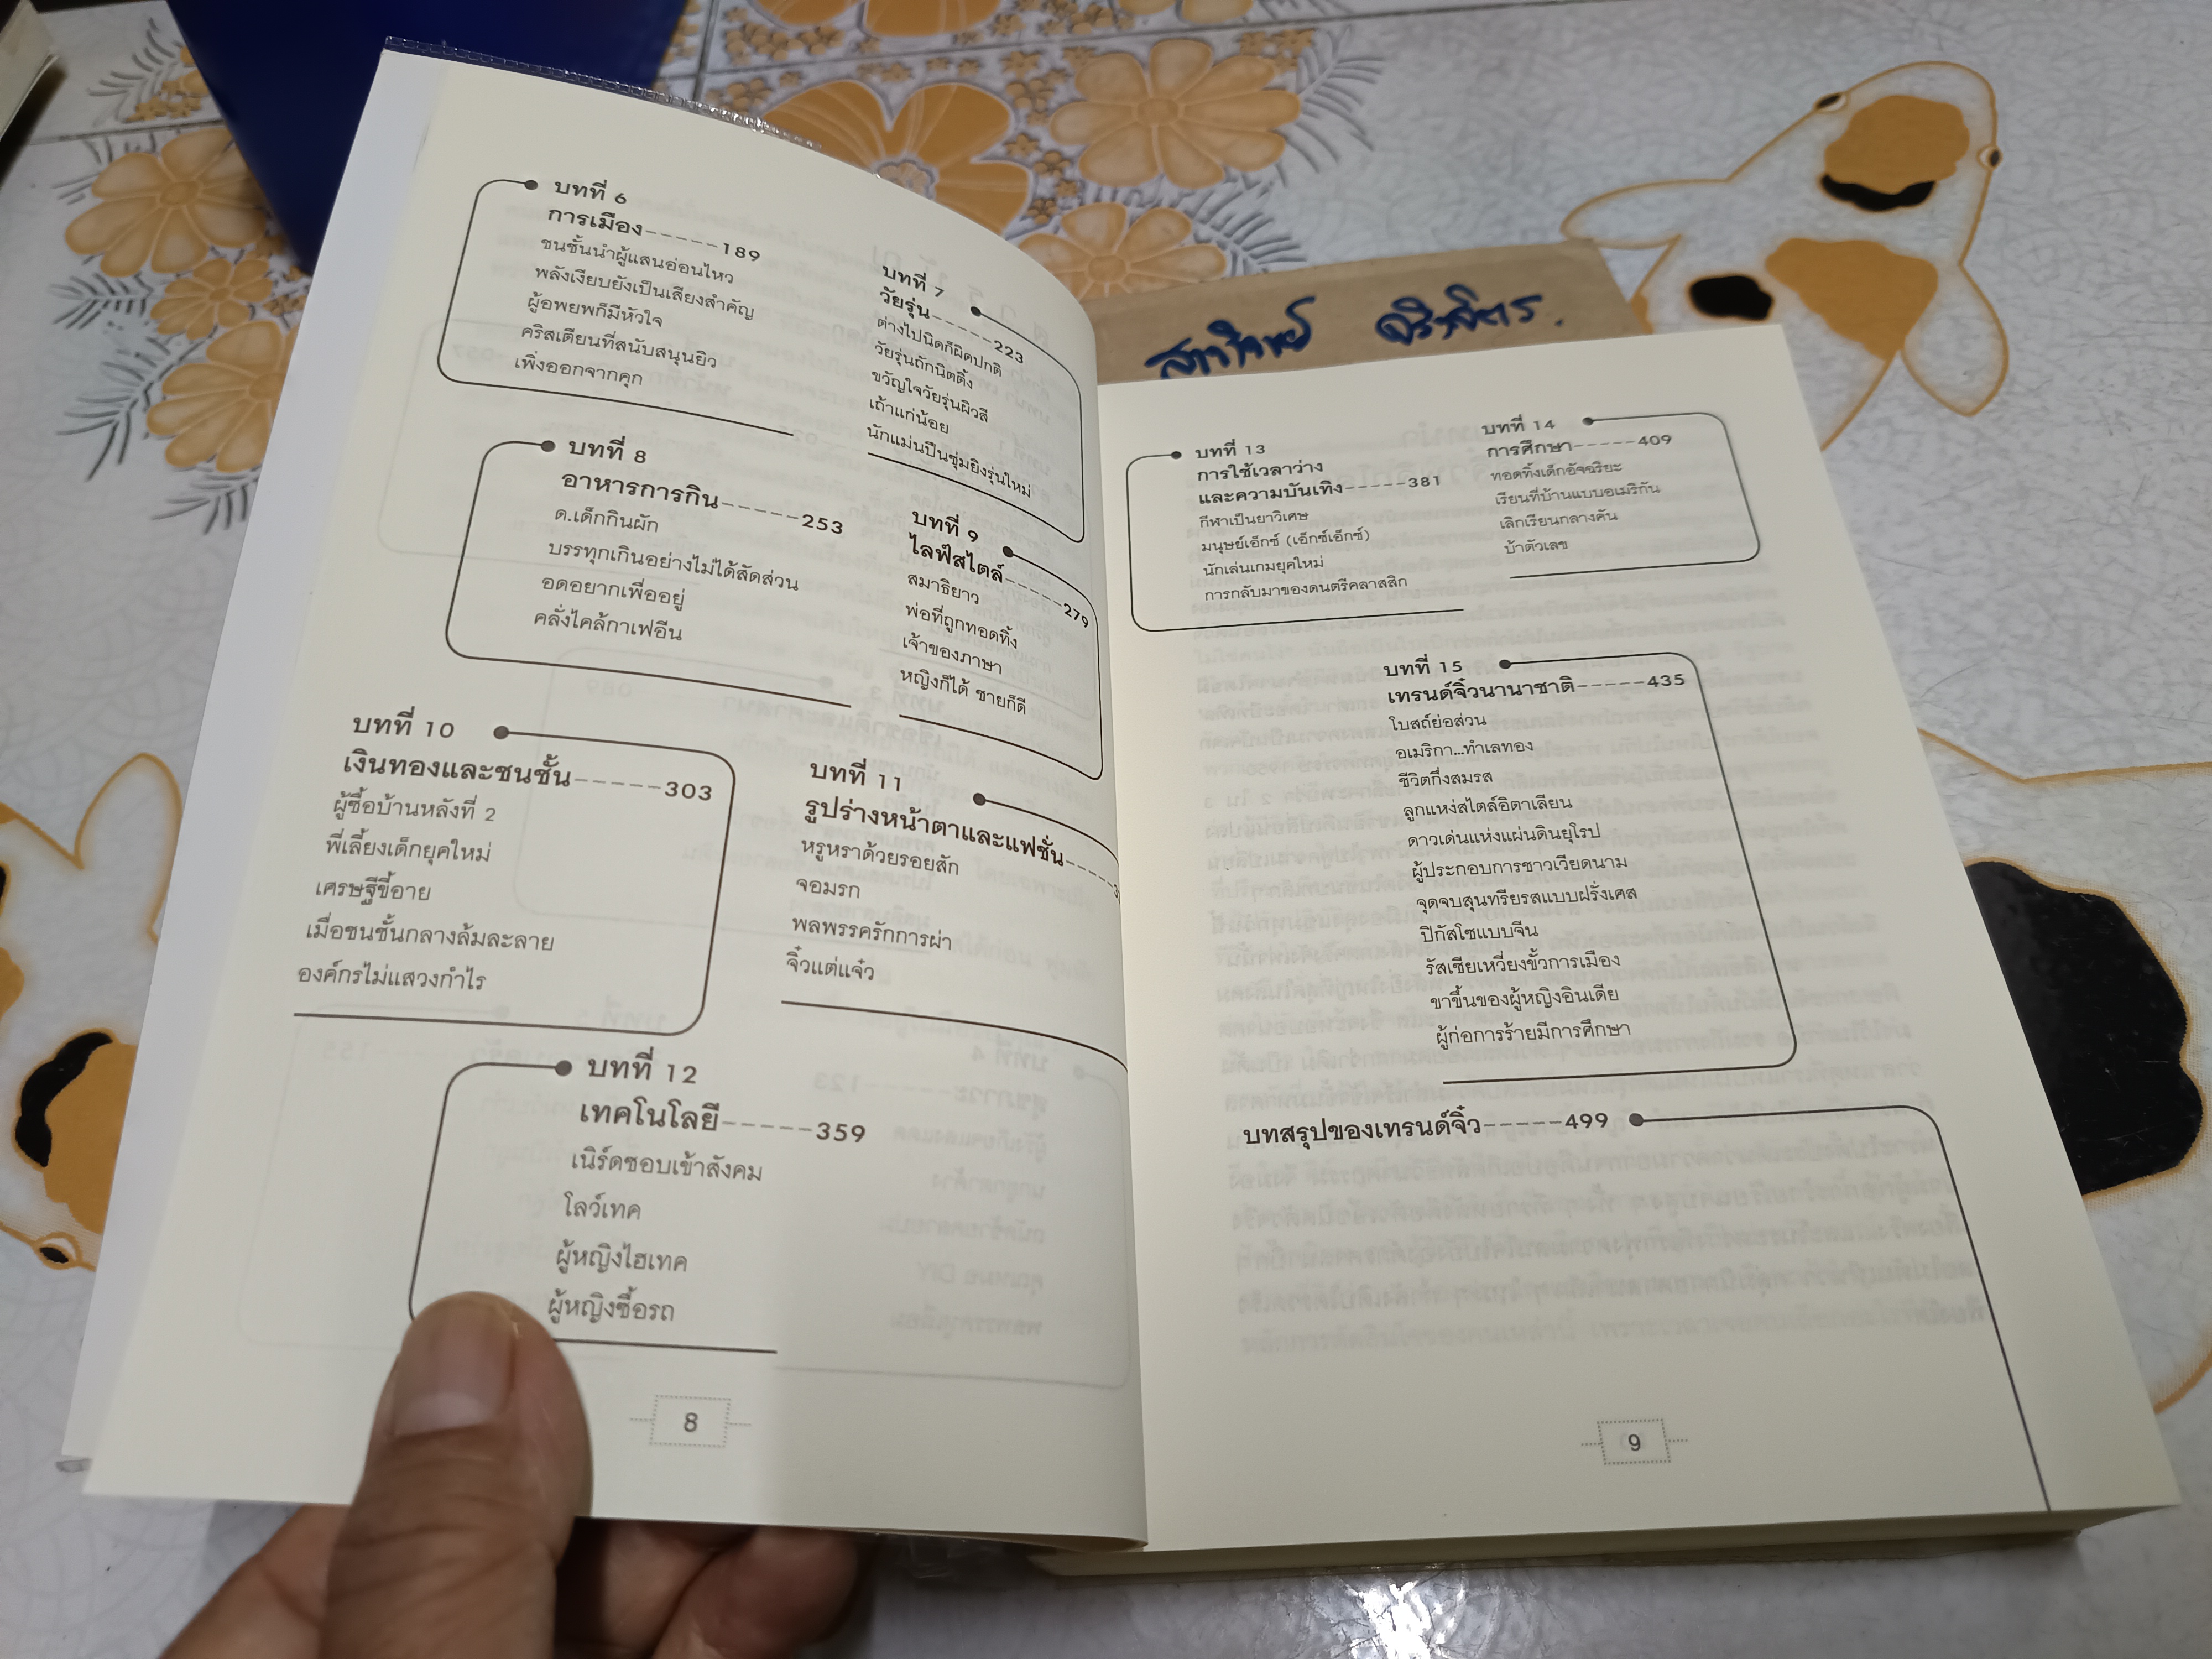 บทที่ 6
การเมือง-----189
ชนชั้นนำผู้แสนอ่อนไหว
พลังเงียบยังเป็นเสียงสำคัญ
ผู้อพยพก็มีหัวใจ
คริสเตียนที่สนับสนุนยิว
เพิ่งออกจากคุก
บทที่ 7
วัยรุ่น-----223
ต่างไปนิดก็ผิดปกติ
วัยรุ่นถักนิตติ้ง
ขวัญใจวัยรุ่นผิวสี
เถ้าแก่น้อย
นักแม่นปืนซุ่มยิงรุ่นใหม่
บทที่ 8
อาหารการกิน-----253
ด.เด็กกินผัก
บรรทุกเกินอย่างไม่ได้สัดส่วน
อดอยากเพื่ออยู่
คลั่งไคล้กาเฟอีน
บทที่ 9
ไลฟ์สไตล์-----279
สมาธิยาว
พ่อที่ถูกทอดทิ้ง
เจ้าของภาษา
หญิงก็ได้ ชายก็ดี
บทที่ 10
เงินทองและชนชั้น-----303
ผู้ซื้อบ้านหลังที่ 2
พี่เลี้ยงเด็กยุคใหม่
เศรษฐีขี้อาย
เมื่อชนชั้นกลางล้มละลาย
องค์กรไม่แสวงกำไร
บทที่ 11
รูปร่างหน้าตาและแฟชั่น----
หรูหราด้วยรอยสัก
จอมรก
พลพรรครักการผ่า
จิ๋วแต่แจ๋ว
บทที่ 12
เทคโนโลยี-----359
เนิร์ดชอบเข้าสังคม
โลว์เทค
ผู้หญิงไฮเทค
ผู้หญิงซื้อรถ
8
บทที่ 13
การใช้เวลาว่าง
และความบันเทิง-----381
กีฬาเป็นยาวิเศษ
มนุษย์เอ็กซ์ (เอ็กซ์เอ็กซ์)
นักเล่นเกมยุคใหม่
การกลับมาของดนตรีคลาสสิก
บทที่ 14
การศึกษา-----409
ทอดทิ้งเด็กอัจฉริยะ
เรียนที่บ้านแบบอเมริกัน
เลิกเรียนกลางคัน
บ้าตัวเลข
บทที่ 15
เทรนด์จิ๋วนานาชาติ-----435
โบสถ์ย่อส่วน
อเมริกา...ทำเลทอง
ชีวิตกึ่งสมรส
ลูกแหง่สไตล์อิตาเลียน
ดาวเด่นแห่งแผ่นดินยุโรป
ผู้ประกอบการชาวเวียดนาม
จุดจบสุนทรียรสแบบฝรั่งเศส
ปิกัสโซแบบจีน
รัสเซียเหวี่ยงขั้วการเมือง
ขาขึ้นของผู้หญิงอินเดีย
ผู้ก่อการร้ายมีการศึกษา
บทสรุปของเทรนด์จิ๋ว-----499
9